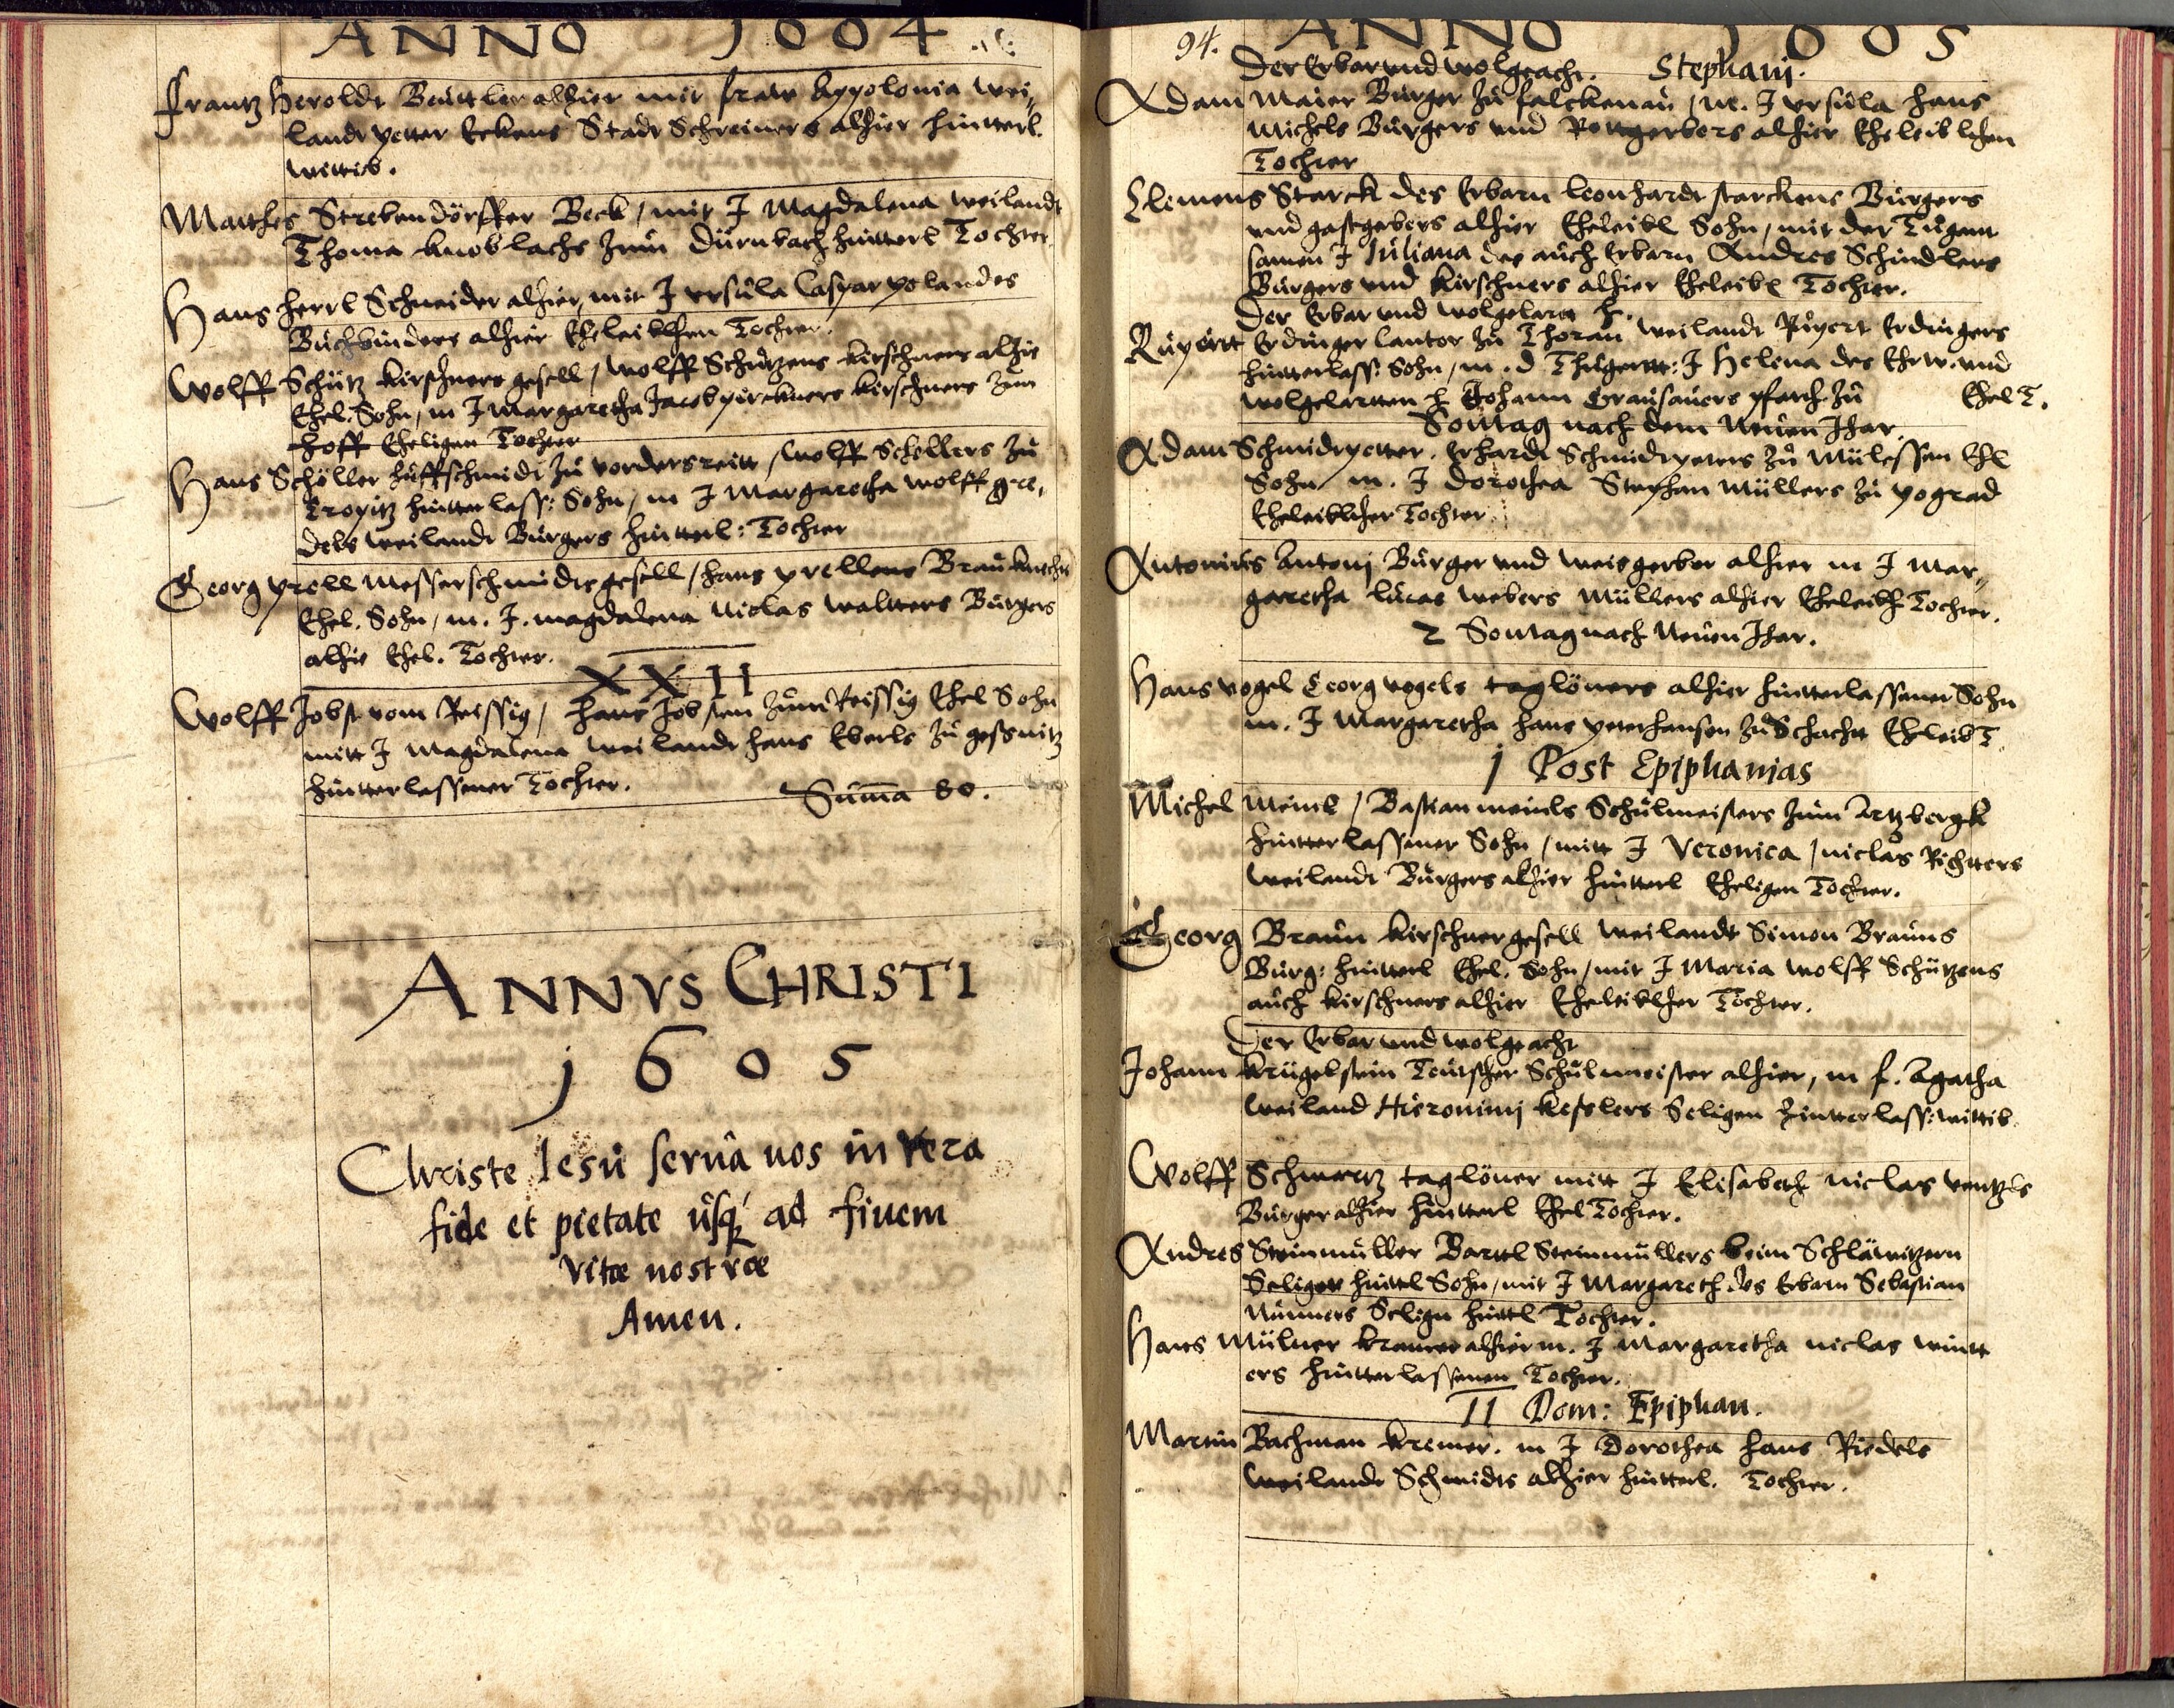 ANNO 1604
Frantz Heroldt Beuttler alhier mit fraw Appolonia wei,
landt petter Eckens Stadt Schreiners alhier hintterl.
wittib.
Matthes Strebendörffer Beck / mit J Magdalena weilandt
Thoma Knoblachs zum Dürnbach hintterl Tochter
Hans Herrl Schneider alhier, mit J Ursula Caspar polandes
Buchbinders alhier Eheleiblichen Tochter.
Wolff Schütz kirschners gesell / Wolff Schützens kirschners alhie
Ehel. Sohn, m J Margaretha Jacob pirckners kirschners zum
hoff Eheligen Tochter
Hans Schöller huffschmidt zu vordersreitt / Wolff Schellers zu
Tropitz hintterlass: Sohn, m J Margaretha Wolff gre,
dels weilandt Bürgers hintterl: Tochter
Georg prell Messerschmidts gesell / Hans prellens Brau
Ehel. Sohn, m. J. Magdalena Niclas Waltters Bürgers
alhie Ehel. Tochter.
XXII
Wolff Jobst vom Reissig / Hans Jobsten zum Reissig Ehel Sohn
mitt J Magdalena weilandt Hans Eberls zu gesßnitz
hintterlassener Tochter.
Suma 80.
ANNVS CHRISTI
1605
Christe Iesu serua nos in vera
fide et pietate usq; ad finem
vitæ nostræ
Amen.
94. ANNO 1605
Der Erbar und wolgeacht. Stephani.
Adam Maier Burger zu Falckenau / m. J Ursula Hans
Michels Burgers und Rottgerbers alhier Eheleiblichen
Tochter
Clemens Starck des Erbarn Leonhardt Starckens Burgers
und gastgebers alhier Eheleibl Sohn, mit der Tugent
samen J Juliana des auch Erbarn Andres Schindlers
Burgers und Kirschners alhier Eheleibl Tochter.
Der Erbar und wolgelart H.
Rupertt Erdinger Cantor zu Thorau weilandt Rupert Erdingers
hintterlass: Sohn, m. d Thugentt: J Helena des Ehrw. und
wolgelartten H Johann Grausauers pfarrh. zu Ehel T.
Sontag nach dem Neuen Jhar.
Adam Schmidtpetter. Erhardt Schmidtpetters zu Mülessen Ehl
Sohn m. J Dorothea Stephan Müllers zu pograd
Eheleiblicher Tochter.
Antonius Antonj Burger und weisgerber alhier m J Mar,
garetha Lucas Webers Müllers alhier Eheleibl Tochter.
2 Sontag nach Neuen Jhar.
Hans Vogel Georg Vogels taglöners alhier hintterlassener Sohn
m. J Margaretha Hans peterhansen zu Schacht Eheleib T
1 Post Epiphanias
Michel Meinel / Bastian Meinels Schulmeisters zum Artzbergk
hintterlassener Sohn / mitt J Veronica / Niclas Richtters
weilandt Burgers alhier hintterl Eheligen Tochter.
Georg Braun kirschner gesell weilandt Simon Brauns
Burg: hintterl Ehel. Sohn / mit J Maria Wolff Schützens
auch kirschners alhier Eheleiblicher Tochter.
Der Erbar und wolgeacht
Johann Krügelstein Teutscher Schulmeister alhier, m f. Agatha
weiland Hieronimj Kesslers Seligen hintterlass: wittib.
Wolff Schwartz taglöner mitt J Elisabeth Niclas Ventzls
Burger alhier hintterl Ehel Tochter.
Andres Steinmüller Barttl Steinmüllers beim Schläwitzern
Seligen hinttl Sohn, mit J Margareth des Erbarn Sebastian
Nünners Selign hinttl Tochter.
Hans Mülner Kramer alhier m. J Margaretha Niclas Wintt
ers hintterlassenen Tochter.
II Dom: Epiphan.
Martin Bachman Kremer. m J Dorothea Hans Riedels
weilandt Schmidts alhier hintterl. Tochter.